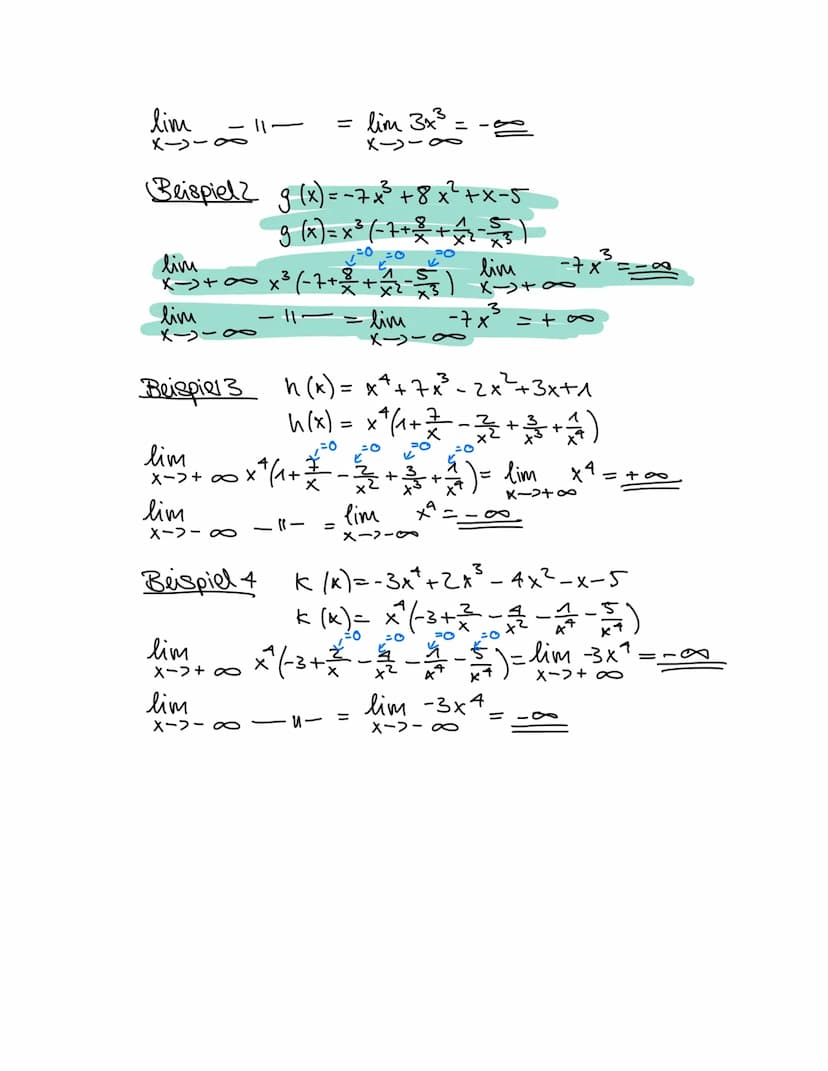 lim x→-∞ -〃- = lim x→-∞ 3x³ = -∞
Beispiel 2 g(x) = -7x³ + 8x² + x - 5
g(x) = x³(-7 + 8/x + 1/x² - 5/x³)
=0 =0 =0
lim x→+∞ x³(-7 + 8/x + 1/x² - 5/x³) lim x→+∞ -7x³ = -∞
lim x→-∞ -〃- = lim x→-∞ -7x³ = +∞
Beispiel 3 h(x) = x⁴ + 7x³ - 2x² + 3x + 1
h(x) = x⁴(1 + 7/x - 2/x² + 3/x³ + 1/x⁴)
=0 =0 =0 =0
lim x→+∞ x⁴(1 + 7/x - 2/x² + 3/x³ + 1/x⁴) = lim x→+∞ x⁴ = +∞
lim x→-∞ -〃- = lim x→-∞ x⁴ = -∞
Beispiel 4 k(x) = -3x⁴ + 2x³ - 4x² - x - 5
k(x) = x⁴(-3 + 2/x - 4/x² - 1/x⁴ - 5/x⁴)
=0 =0 =0 =0
lim x→+∞ x⁴(-3 + 2/x - 4/x² - 1/x⁴ - 5/x⁴) = lim x→+∞ -3x⁴ = -∞
lim x→-∞ -〃- = lim x→-∞ -3x⁴ = -∞